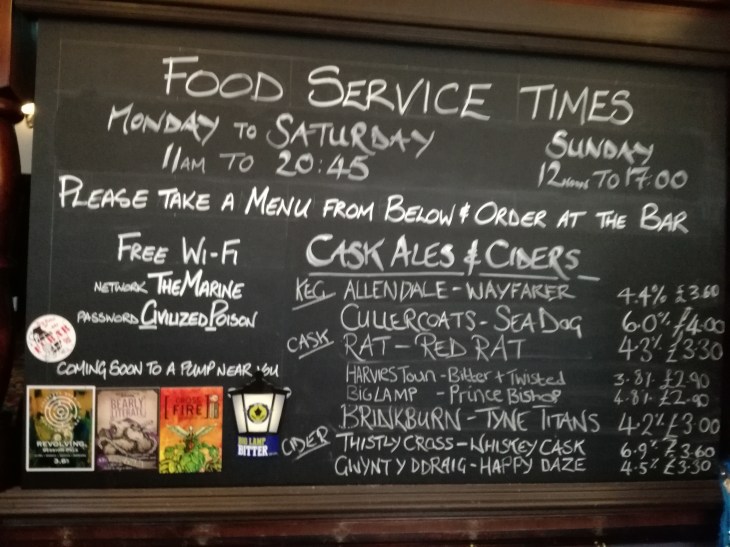 FOOD SERVICE TIMES
MONDAY TO SATURDAY
11AM TO 20:45
SUNDAY
12NOON TO 17:00
PLEASE TAKE A MENU FROM BELOW & ORDER AT THE BAR
FREE WI-FI
NETWORK THEMARINE
PASSWORD CIVILIZEDPOISON
COMING SOON TO A PUMP NEAR YOU
REVOLVING
3.8%
BEARLY LITERATE
CROSS FIRE
BIG LAMP
BITTER
CASK ALES & CIDERS
KEG ALLENDALE - WAYFARER 4.4% £3.60
CULLERCOATS - SEA DOG 6.0% £4.00
CASK RAT - RED RAT 4.3% £3.30
HARVIESTOWN - Bitter + Twisted 3.8% £2.90
BIG LAMP - Prince Bishop 4.8% £2.90
BRINKBURN - TYNE TITANS 4.2% £3.00
CIDER THISTLY CROSS - WHISKEY CASK 6.9% £3.60
GWYNT Y DDRAIG - HAPPY DAZE 4.5% £3.30